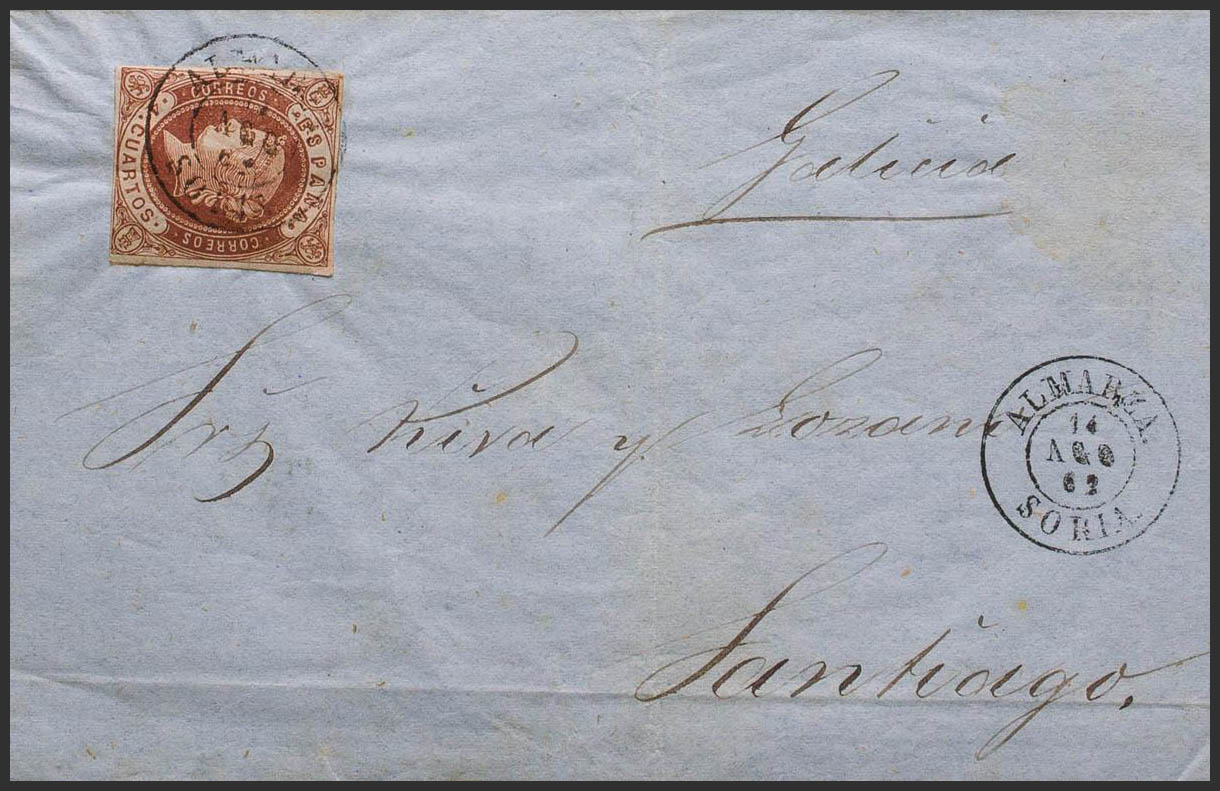 CORREOS
ESPAÑA.
CUARTOS.
CORREOS
AGO
Galicia
Sres Riva y Lozano
ALMARZA.
14
AGO
62
SORIA.
Santiago.